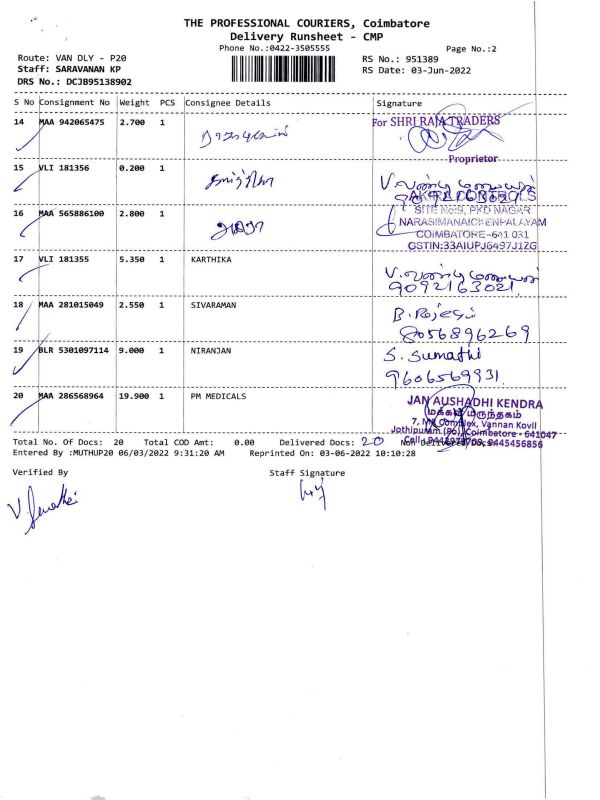 THE PROFESSIONAL COURIERS, Coimbatore
Delivery Runsheet - CMP
Phone No.:0422-3505555
Page No.:2
Route: VAN DLY - P20
RS No.: 951389
Staff: SARAVANAN KP
RS Date: 03-Jun-2022
DRS No.: DCJB95138902
S No Consignment No Weight PCS Consignee Details Signature
14 MAA 942065475 2.700 1
For SHRI RAJA TRADERS
Proprietor
15 VLI 181356 0.200 1
AKARA CONTROLS
16 MAA 565886100 2.800 1
SITE No:9, PKD NAGAR
NARASIMANAICKENPALAYAM
COIMBATORE-641 031
GSTIN:33AIUPJ6497J1ZG
17 VLI 181355 5.350 1 KARTHIKA
9092163021.
18 MAA 281015049 2.550 1 SIVARAMAN
B. Rajesh
8056896269
19 BLR 5301097114 9.000 1 NIRANJAN
S. Sumathi
9606569931.
20 MAA 286568964 19.900 1 PM MEDICALS
JAN AUSHADHI KENDRA
மக்கள் மருந்தகம்
7, Complex, Vannan Kovil
Jothipuram (Po), Coimbatore - 641047
Total No. Of Docs: 20 Total COD Amt: 0.00 Delivered Docs: 20 Non Delivered Docs:
9445456856
Entered By :MUTHUP20 06/03/2022 9:31:20 AM Reprinted On: 03-06-2022 10:10:28
Verified By Staff Signature